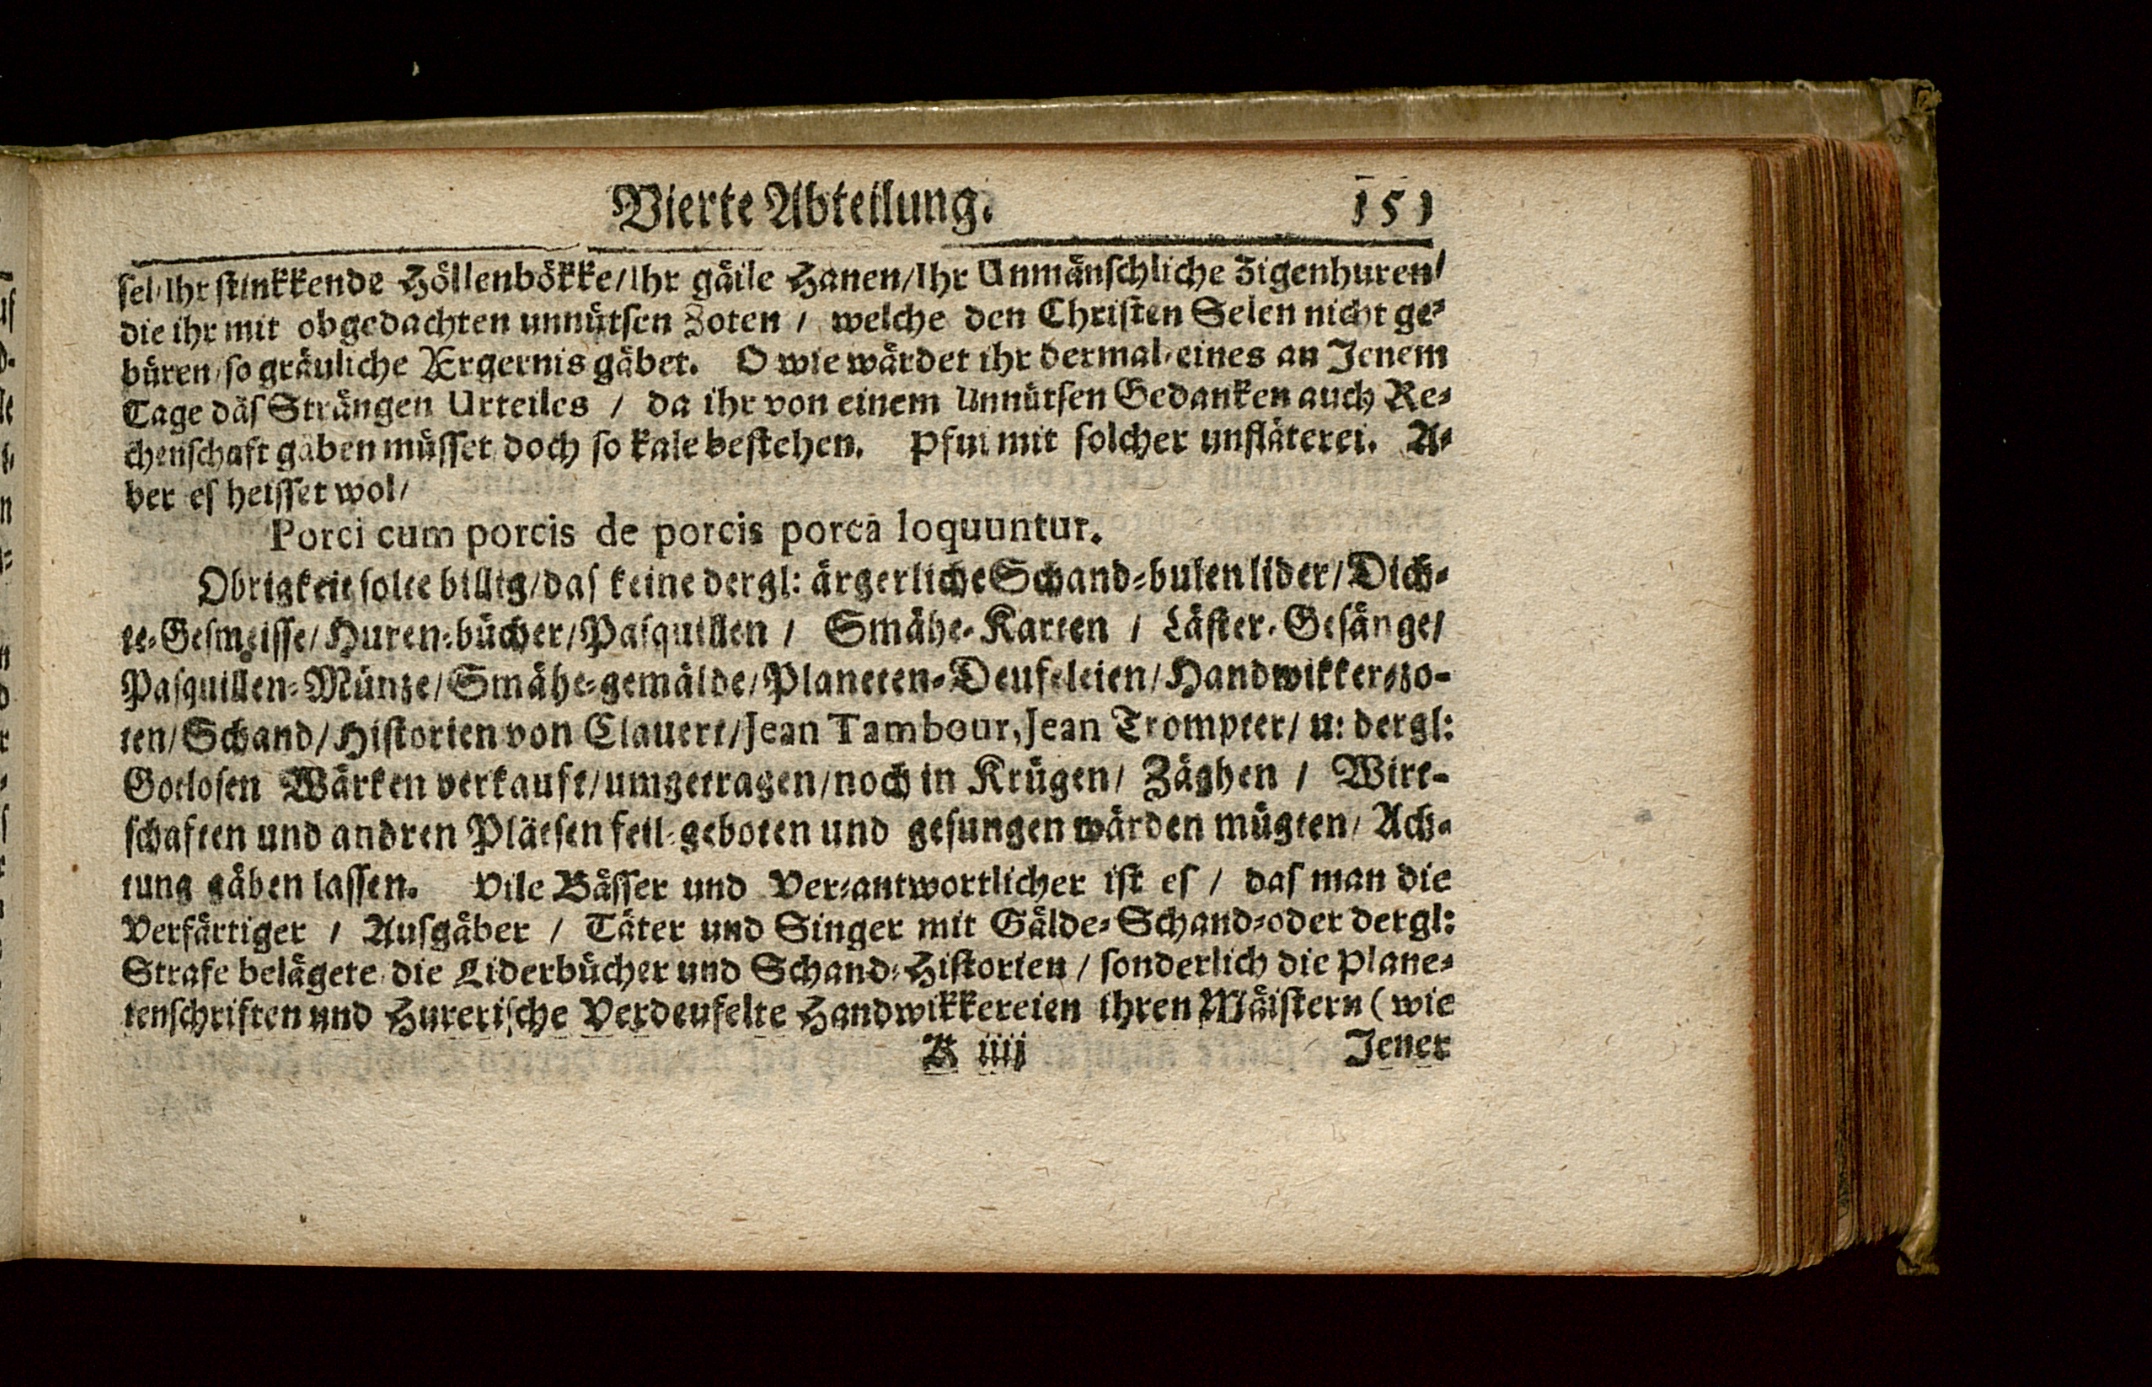 Vierte Abteilung. 151
sel/Ihr stinkkende Höllenbökke/Ihr gäile Hanen/Ihr Unmänschliche Zigenhuren/
die ihr mit obgedachten unnütsen Zoten / welche den Christen Selen nicht ge-
büren/so gräuliche Ærgernis gäbet. O wie wärdet ihr dermal-eines an Jenem
Tage däs Strängen Urteiles / da ihr von einem Unnütsen Gedanken auch Re-
chenschaft gäben müsset/doch so kale bestehen. Pfui mit solcher unfläterei. A-
ber es heisset wol/
Porci cum porcis de porcis porca loquuntur.
Obrigkeit solte billig/das keine dergl: ärgerliche Schand-bulen lider/Dich-
te-Gesmeisse/Huren-bücher/Pasquillen / Smähe-Karten / Läster-Gesänge/
Pasquillen-Münze/Smähe-gemälde/Planeten-Deufeleien/Handwikker-zo-
ten/Schand/Historien von Clauert/Jean Tambour, Jean Trompter/ u: dergl:
Gotlosen Wärken verkauft/umgetragen/noch in Krügen/ Zäghen / Wirt-
schaften und andren Plätsen feil-geboten und gesungen wärden mügten/ Ach-
tung gäben lassen. Vile Bässer und Ver-antwortlicher ist es / das man die
Verfärtiger / Ausgäber / Täter und Singer mit Gälde-Schand-oder dergl:
Strafe belägete/die Liderbücher und Schand-Historien / sonderlich die Plane-
tenschriften und Hurerische Verdeufelte Handwikkereien ihren Mäistern (wie
K iiij Jener